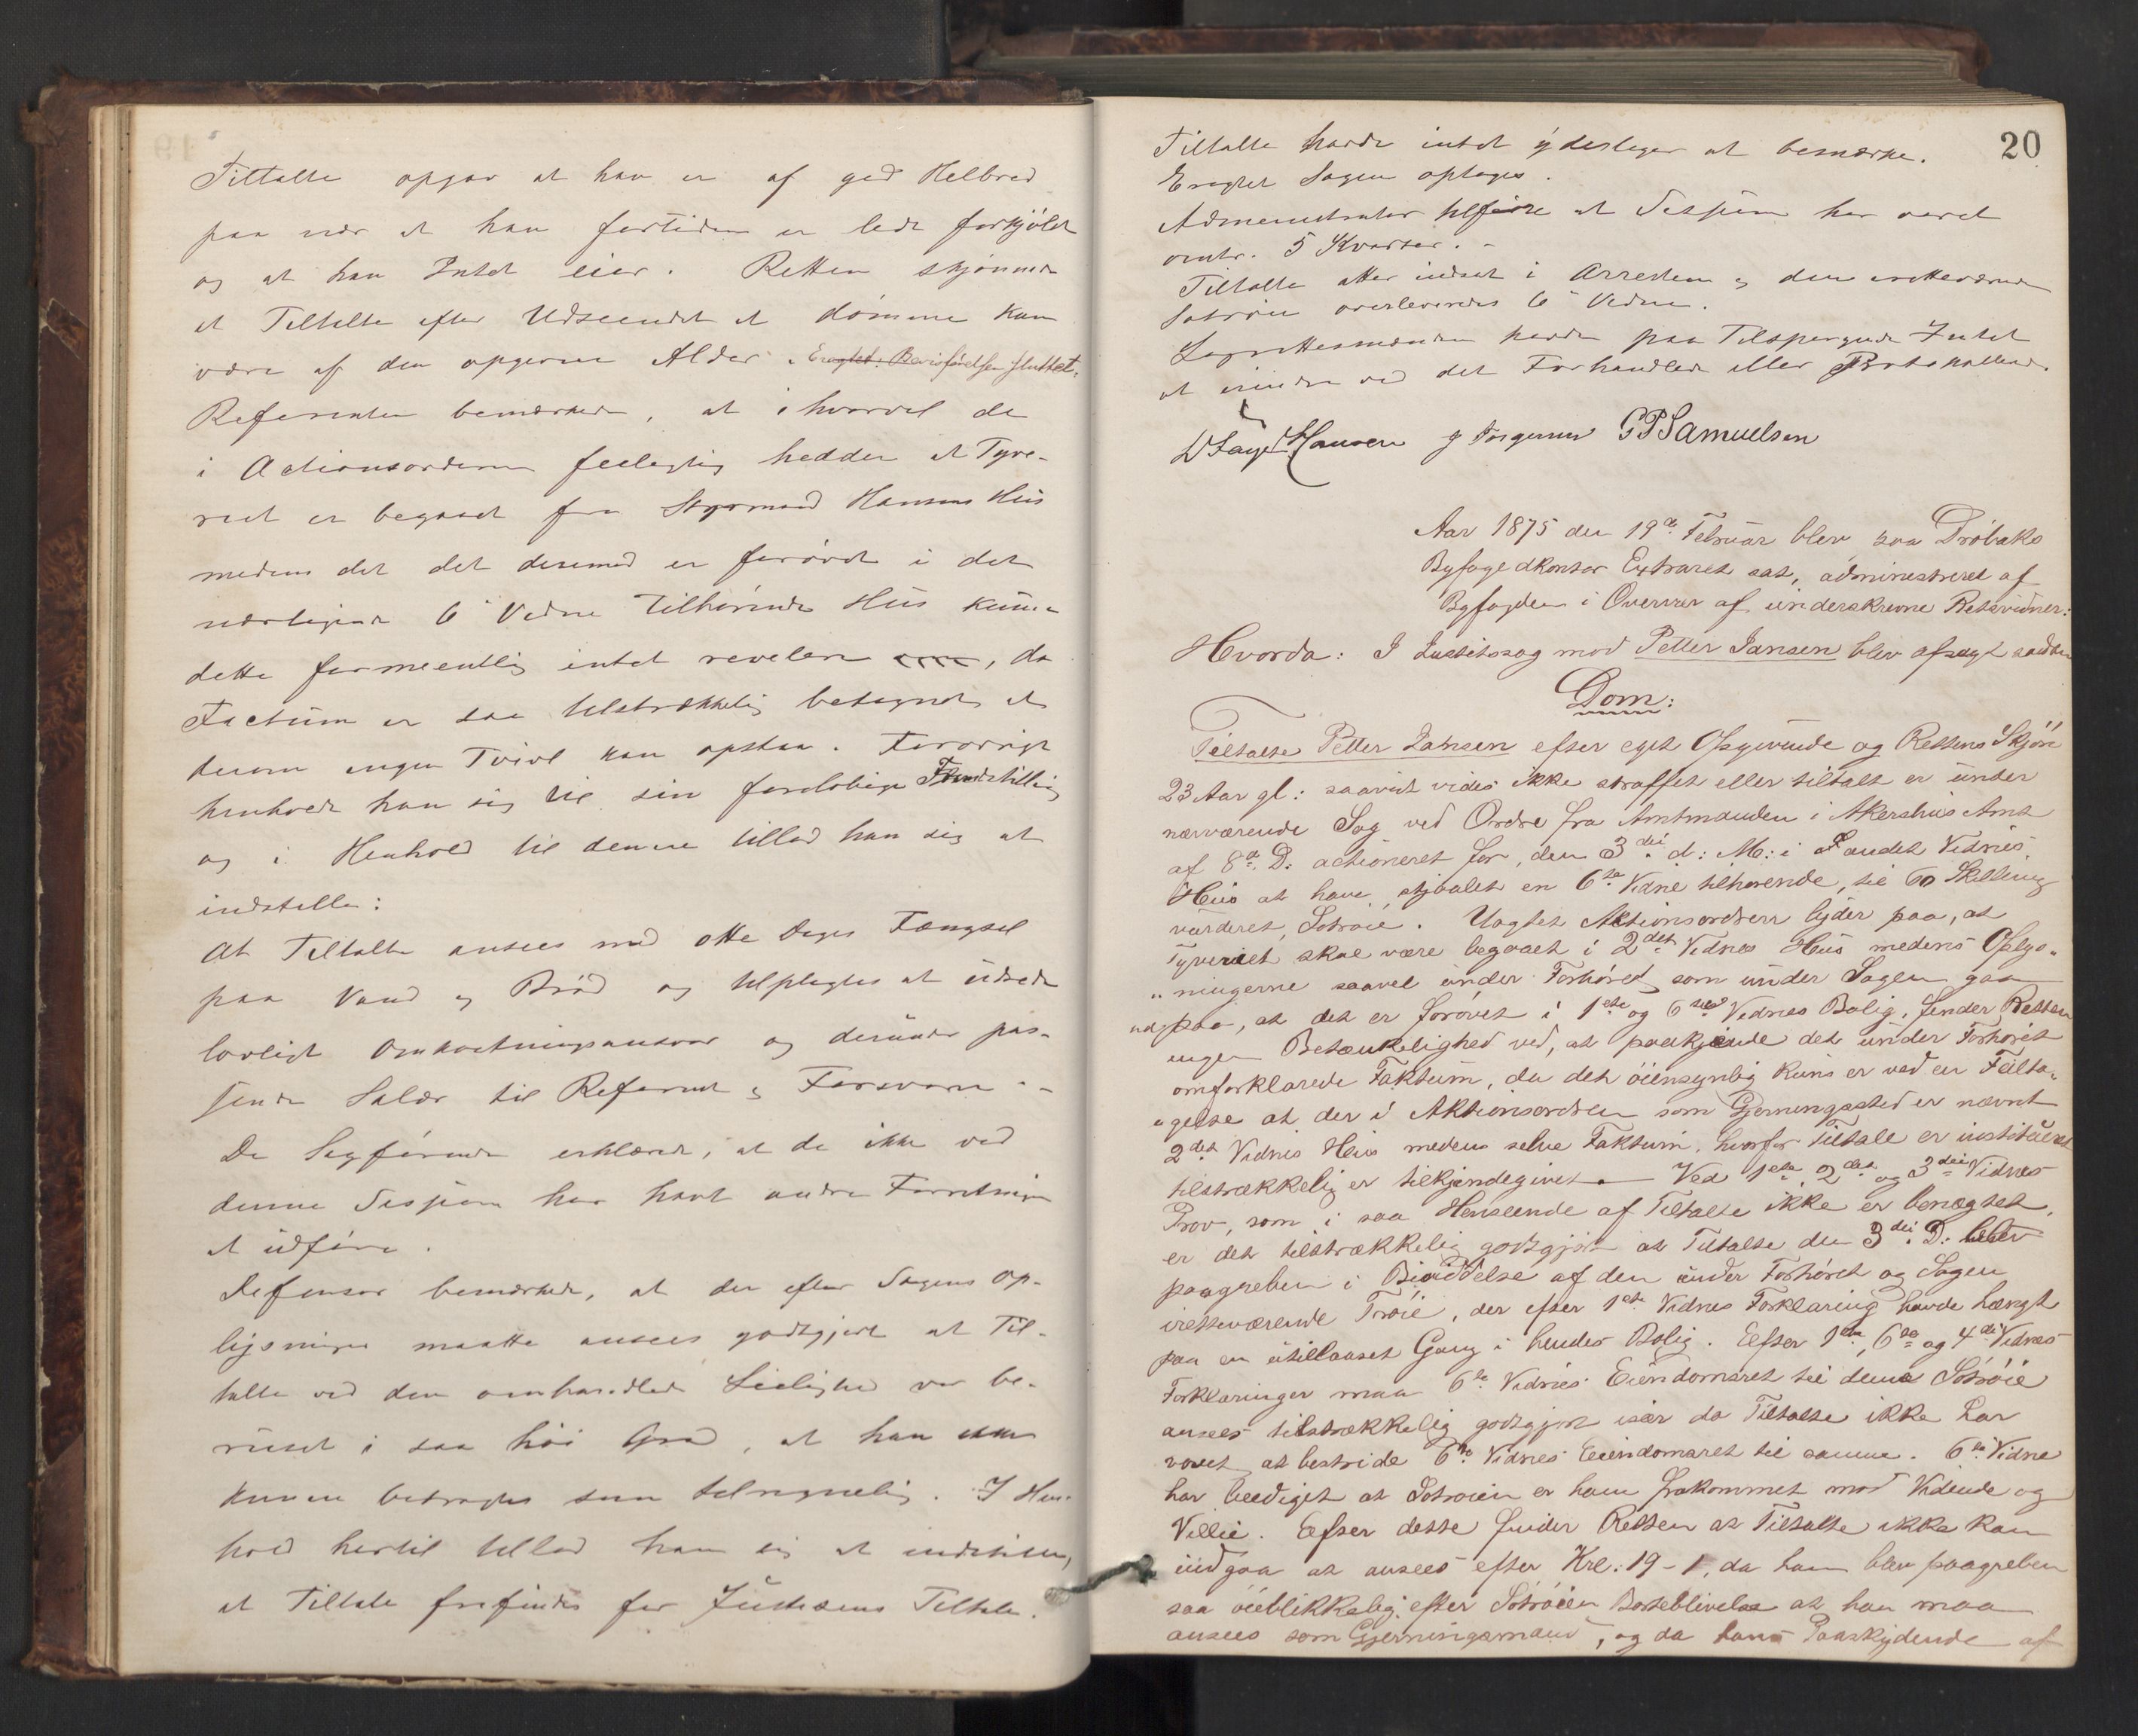 Tiltalte opgav at han er af god Helbred
paa nær at han fortiden er lidt forkjølet
og at han Intet eier. Retten skjønnede
at Tiltalte efter Udseendet at dømme kan
være af den opgivne Alder. Eragtet: Bevisførelsen sluttet.
Referenten bemærkede, at ihvorvel de
i Actionsordren feilagtig hedder at Tyve-
riet er begaaet fra Styrmand Hansens Hus
medens det det desmed er forøvet i det
nærliggende 6 Vidne tilhørende Hus kunde
dette formeentlig intet relevere, da
Factum er saa tilstrækkelig betegnet at
derom ingen Tvivl kan opstaa. Forøvrigt
henholdt han sig til sin foreløbige Fremstilling
og i Henhold til denne tillod han sig at
indstille:
At Tiltalte ansees med otte Dages Fængsel
paa Vand og Brød og tilpligtes at udrede
lovligt Omkostningsansvar og derunder pas-
sende Salær til Referent og Forsvarer.-
De Sagførende erklærede, at de ikke ved
denne Session har havt andre Forretninger
at udføre.
Defensor bemærkede, at der efter Sagens Op-
lysninger maatte ansees godtgjort at Til-
talte ved den omhandlede Leilighed var be-
ruset i saa høi Grad, at han ikke
kunne betragtes som tilregnelig. I Hen-
hold hertil tillod han sig at indstille,
at Tiltalte frifindes for Justitsens Tiltale.
20
Tiltalte havde intet yderligere at bemærke.
Eragtet Sagen optages.
Administrator tilføiede at Sessionen har varet
omtr. 5 Kvarter.-
Tiltalte atter indsat i Arresten og den iretteværende
Sotrøie overleveredes 6 Vidne.
Lagrettesmændene havde paa Tilspørgende Intet
at erindre ved det Forhandlede eller Protokollerede.
Hansen J Torgersen GPSamuelsen
Aar 1875 den 19de Februar blev paa Drøbaks
Byfogedkontor Extraret sat, administreret af
Byfogden i Overvær af underskrevne Retsvidner:
Hvorda: I Justitssag mod Petter Jansen blev afsagt saadan
Dom:
Tiltalte Petter Jansen efter eget Opgivende og Rettens Skjøn
23 Aar gl: saavidt vides ikke straffet eller tiltalt er under
nærværende Sag ved Ordre fra Amtmanden i Akershus Amt
af 8de D: actioneret for, den 3die d: M: i andet Vidnes
Hus at have stjaalet en 6te Vidne tilhørende, til 60 Skilling
vurderet, Sotrøie. Uagtet Aktionsordren lyder paa, at
Tyveriet skal være begaaet i 2det Vidnes Hus medens Oplys-
"ningerne saavel under Forhøret som under Sagen gaa
ud paa, at det er forøvet i 1ste og 6te Vidnes Bolig, finder Retten
ingen Betænkelighed ved, at paakjende det under Forhøret
omforklarede Faktum, da det øiensynlig kuns er ved en Feilta-
"gelse at der i Aktionsordren som Gjerningssted er nævnt
2det Vidnes Hus medens selve Faktum, hvorfor Tiltale er institueret
tilstrækkelig er tilkjendegivet. Ved 1ste, 2det og 3die Vidnes
Prov, som i saa Henseende af Tiltalte ikke er benægtet,
er det tilstrækkelig godtgjort at Tiltalte den 3die D: blev
paagreben i Besiddelse af den under Forhøret og Sagen
iretteværende Trøie, der efter 1ste Vidnes Forklaring havde hængt
paa en utillaaset Gang i hendes Bolig. Efter 1ste, 6te og 4de Vidnes
Forklaringer maa 6te Vidnes Eiendomsret til denne Sotrøie
ansees tilstrækkelig godtgjort især da Tiltalte ikke har
vovet at bestride 6te Vidnes Eiendomsret til samme. 6te Vidne
har beediget at Sotrøien er ham frakommet mod Vidende og
Villie. Efter dette finder Retten at Tiltalte ikke kan
undgaa at ansees efter Krl: 19-1, da han blev paagreben
saa øieblikkelig efter Sotrøien Borteblivelse at han maa
ansees som Gjerningsmand, og da hans Paaskydende af